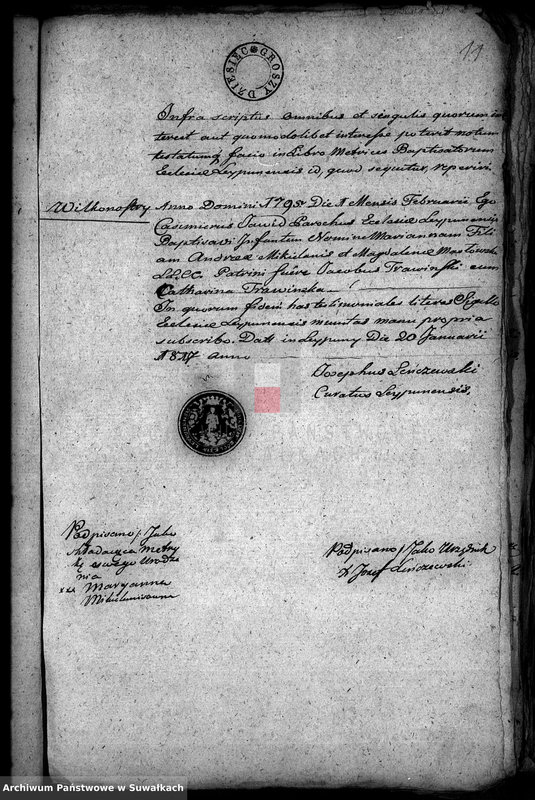 11
DZIESIĘC GROSZY
Infra scriptus omnibus et singulis quorum in
terest aut quomodolibet interesse poterit notum
testatumq facio in Libro Metrices Baptisatorum
Eclesiæ Leypunensis id, quod sequitur, reperiri.
Wilkonostry Anno Domini 1795 Die 11 Mensis Februarii Ego
Casimirus Dawid Parochus Eclesiæ Leypunensis
Baptisavi Infantem Nomine Mariannam Fili
am Andreæ Mikielanis et Magdalenæ Masłowska
LL. CC. Patrini fuere Jacobus Trawinski cum
Catharina Trawinska
In quorum fidem has testimoniales literas Sigillo
Eclesiæ Leypunensis munitas manu propria
subscribo. Datt in Leypuny Die 20 Januarii
1817 Anno
Josephus Leńczewski
Curatus Leypunensis,
Podpisano / Jako
składaiąca metry
kę swego urodze
nia
xxx Maryanna
Podpisano / Jako Urzędnik
X Josef Leńczewski
Archiwum Państwowe w Suwałkach